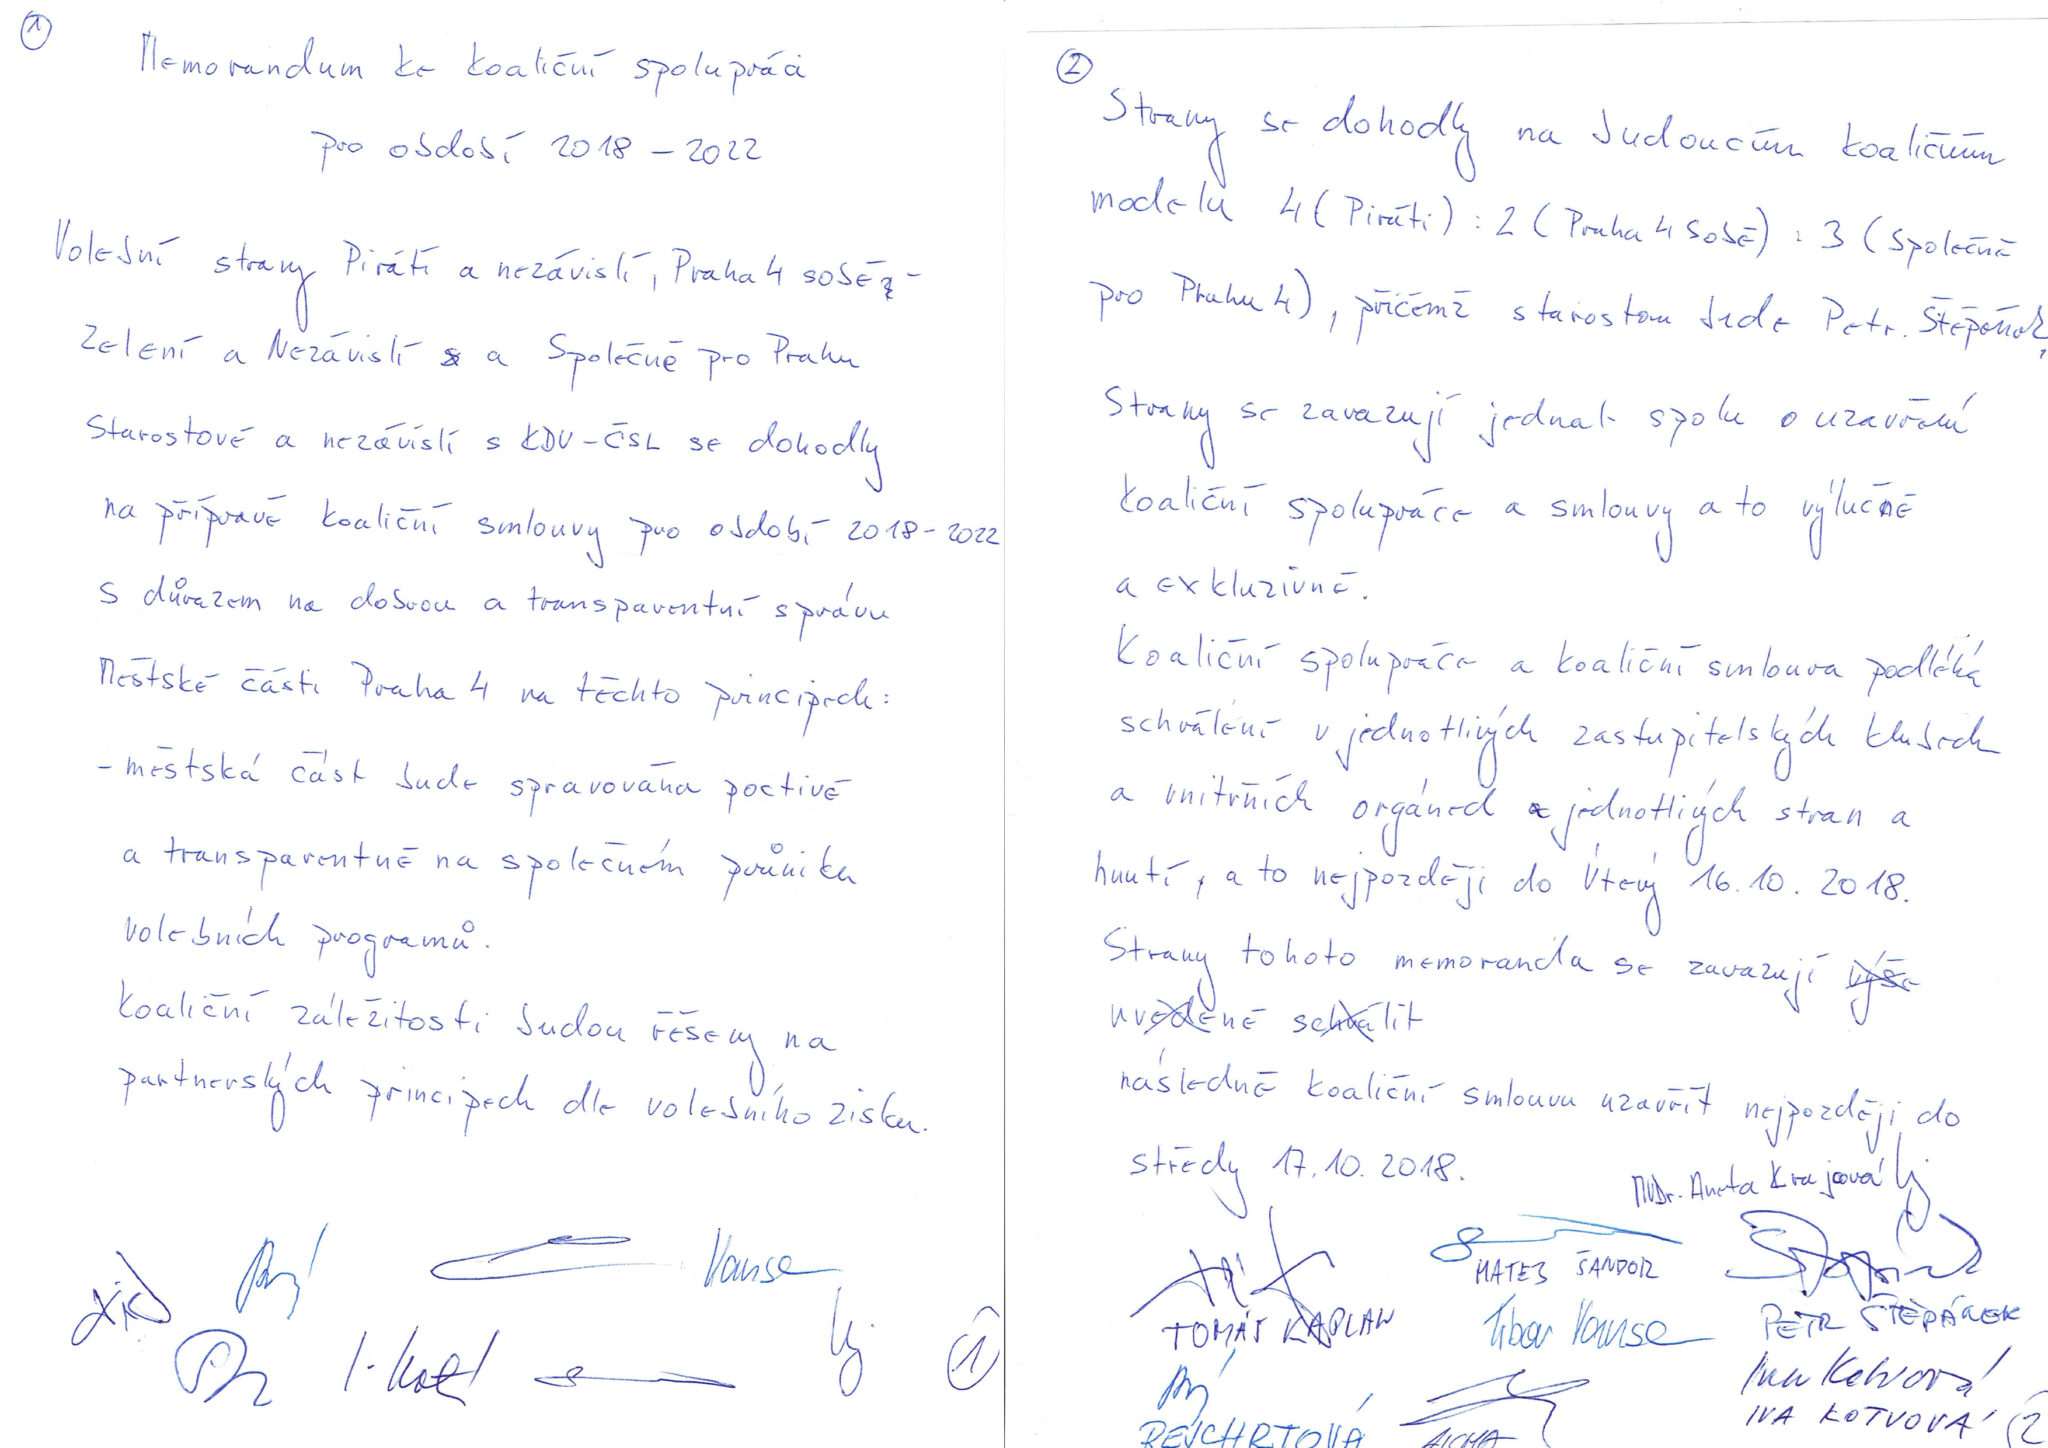 1
Memorandum ke koaliční spolupráci
pro období 2018 - 2022
Volební strany Piráti a nezávislí, Praha 4 sobě -
Zelení a Nezávislí a Společně pro Prahu
Starostové a nezávislí s KDU-ČSL se dohodly
na přípravě koaliční smlouvy pro období 2018-2022
s důrazem na dobrou a transparentní správu
Městské části Praha 4 na těchto principech:
- městská část bude spravována poctivě
a transparentně na společném průniku
volebních programů.
Koaliční záležitosti budou řešeny na
partnerských principech dle volebního zisku.
Vanse
1
2
Strany se dohodly na budoucím koaličním
modelu 4 (Piráti) : 2 (Praha 4 sobě) : 3 (Společně
pro Prahu 4), přičemž starostou bude Petr Štěpánek,
Strany se zavazují jednat spolu o uzavření
koaliční spolupráce a smlouvy a to výlučně
a exkluzivně.
Koaliční spolupráce a koaliční smlouva podléhá
schválení v jednotlivých zastupitelských klubech
a vnitřních orgánech jednotlivých stran a
hnutí, a to nejpozději do úterý 16.10.2018.
Strany tohoto memoranda se zavazují výše
uvedené schválit
následně koaliční smlouvu uzavřít nejpozději do
středy 17.10.2018.
MUDr. Aneta Krajcová
MATEJ ŠANDOR
TOMÁŠ KAPLAN
Tibor Vansa
PETR ŠTĚPÁNEK
Iva Kotvová
IVA KOTVOVÁ
REICHRTOVÁ
2